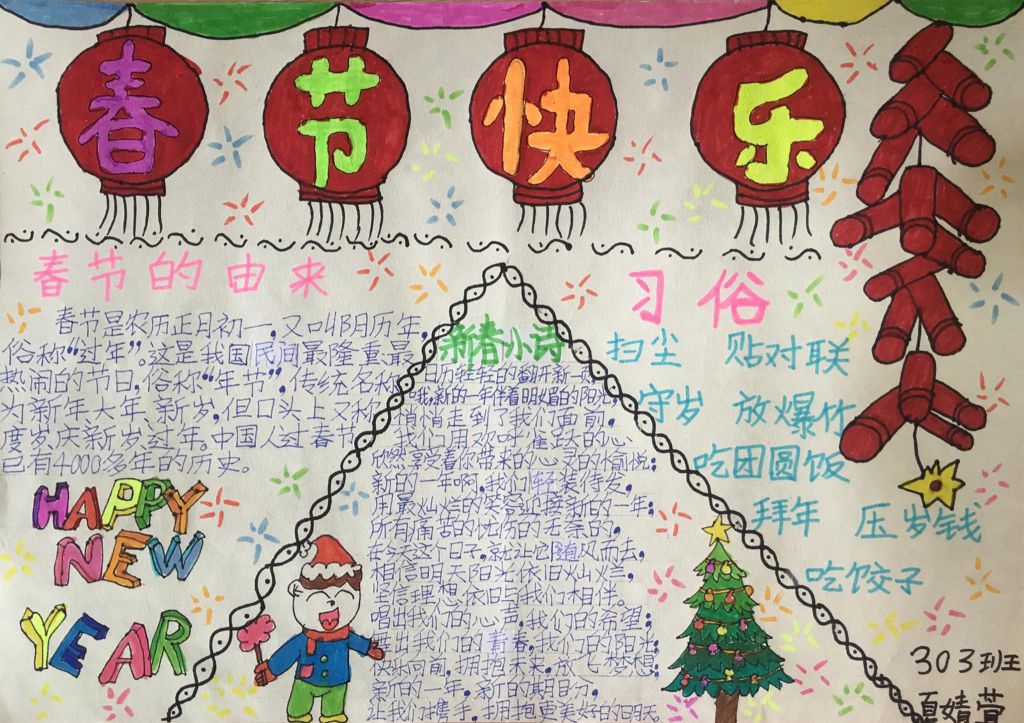 春节快乐
春节的由来
春节是农历正月初一,又叫阴历年,
俗称“过年”。这是我国民间最隆重、最
热闹的节日,俗称“年节”,传统名称
为新年、大年、新岁,但口头上又称
度岁、庆新岁、过年。中国人过春节
已有4000多年的历史。
HAPPY
NEW
YEAR
新春小诗
日历轻轻的翻开新一页
哦,新的一年伴着明媚的阳光
悄悄走到了我们面前,
我们用欢呼雀跃的心
欣然享受着你带来的心灵的愉悦;
新的一年啊,我们轻装待发,
用最灿烂的笑容迎接新的一年;
所有痛苦的忧伤的无奈的,
在今天这个日子,就让它随风而去,
相信明天阳光依旧灿烂,
坚信理想依旧与我们相伴。
唱出我们的心声,我们的希望;
舞出我们的青春,我们的阳光
快乐向前,拥抱未来,放飞梦想;
新的一年,新的期盼,
让我们携手,拥抱更美好的明天。
习俗
扫尘 贴对联
守岁 放爆竹
吃团圆饭
拜年 压岁钱
吃饺子
303班
夏婧萱